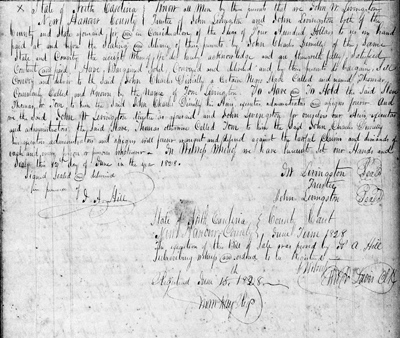 State of North Carolina } Know all Men by these presents that we John W Livingston
New Hanover County } Trustee of John Livingston and John Livingston both of the
County and State aforesaid for and in Consideration of the Sum of Four Hundred Dollars to us in hand
paid at and upon the Sealing & delivery of these presents by John Charles of the same
State and County the receipt whereof we do hereby acknowledge and are therewith fully satisfied
Content and paid Have Bargained Sold Conveyed and delivered and by these presents do bargain, Sell
Convey and deliver to the said John Charles a Certain Negro Slave Called and named Thomas,
Commonly Called and Known by the Name of Tom Livingston. To Have & To Hold the Said Slave
Thomas, or Tom to him the said John Charles his heirs executors administrators & assigns forever And
we the Said John W Livingston Trustee as aforesaid and John Livingston for ourselves our Heirs executors
and administrators the Said Slave Thomas otherwise Called Tom to him the Said John Charles
his executors administrators and assigns will forever warrant and defend against the lawful Claims and demands of
each and every person or persons whatsoever. In Witness Whereof we have hereunto set our Hands and
Seals the 10th day of June in the year 1828.
Signed Sealed & delivered
in presence
Hill
Livingston (Seal)
Trustee
John Livingston (Seal)
State of North Carolina } County Court
New Hanover County } June Term 1828
The execution of this Bill of Sale was proved by A Hill
Subscribing witness and ordered to be Registered
Witness
Registered June 15th 1828